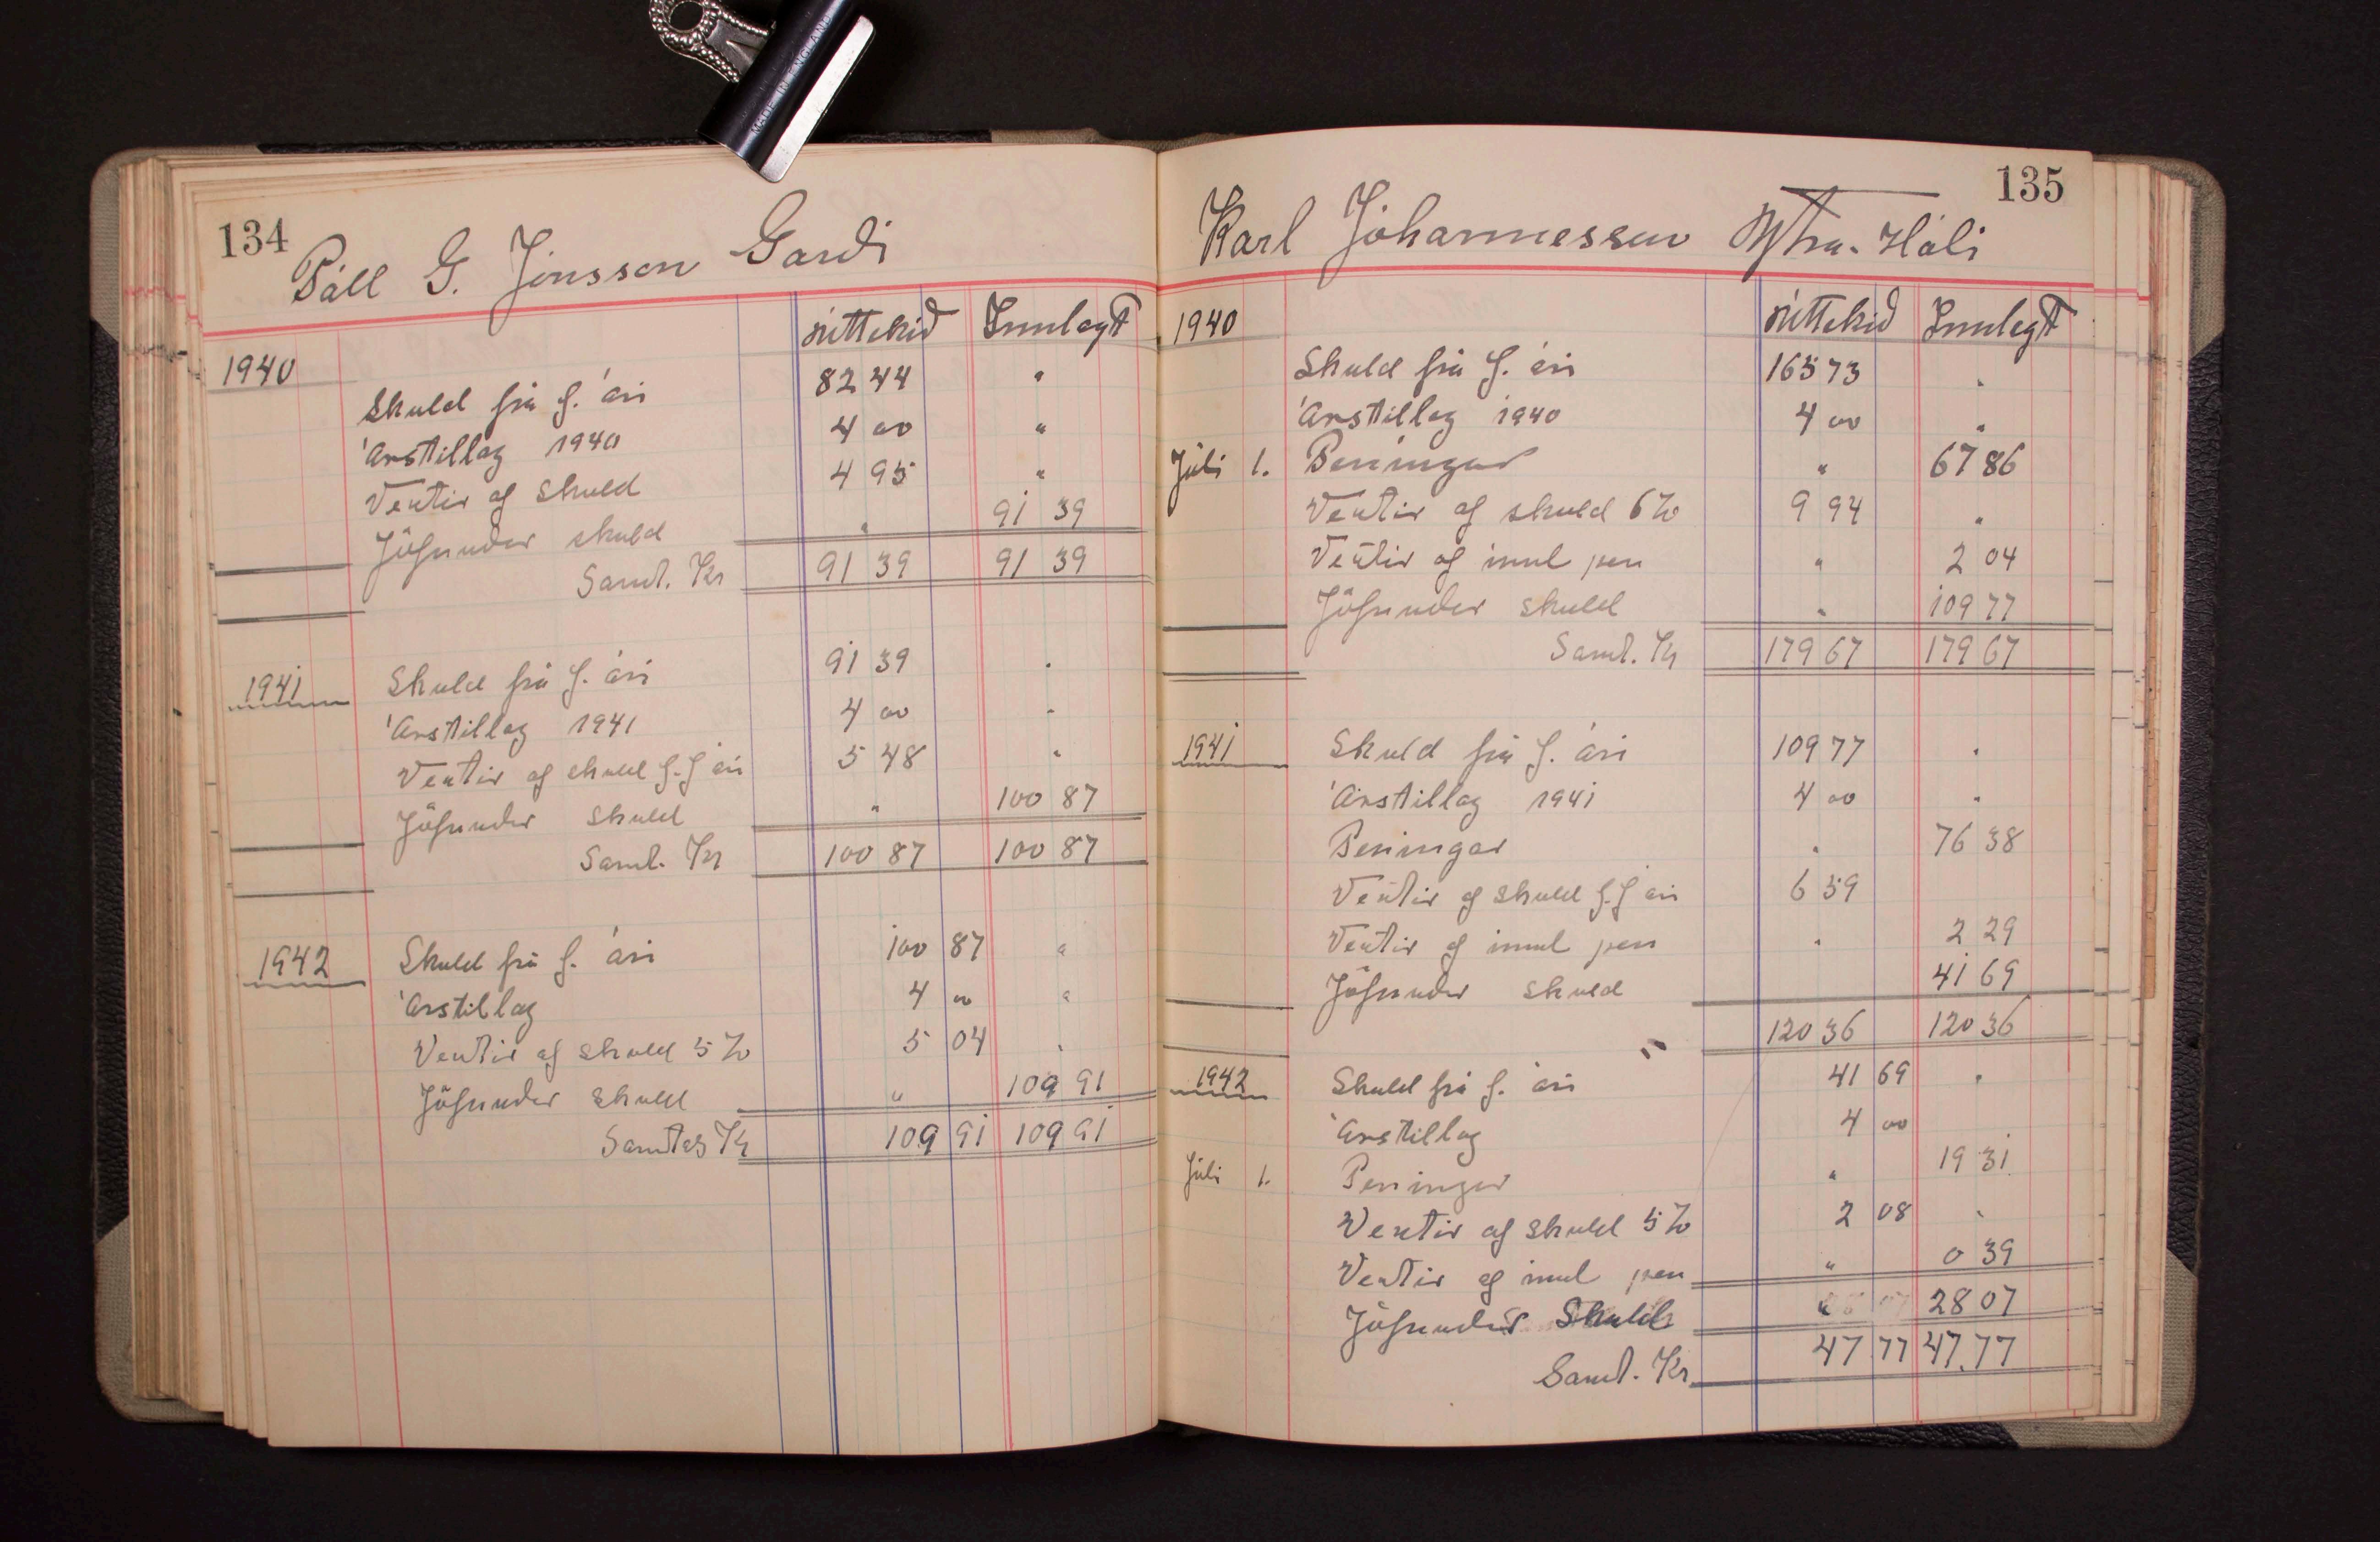 MADE IN ENGLAND
134
Páll G. Jónsson Garði
úttekið Innlagt
1940
Skuld frá f. ári 82 44 "
Árstillag 1940 4 00 "
Vextir af skuld 4 95 "
Jöfnuður skuld " 91 39
Samt. Kr 91 39 91 39
1941 Skuld frá f. ári 91 39 "
Árstillag 1941 4 00 "
Vextir af skuld f.f ári 5 48 "
Jöfnuður skuld " 100 87
Samt. Kr 100 87 100 87
1942 Skuld frá f. ári 100 87 "
Árstillag 4 00 "
Vextir af skuld 5% 5 04 "
Jöfnuður skuld " 109 91
Samtes Kr 109 91 109 91
135
Karl Jóhannesson Ytra-Hóli
1940 úttekið Innlegt
Skuld frá f. ári 165 73 "
Árstillag 1940 4 00 "
Júlí 1. Peningar " 67 86
Vextir af skuld 6% 9 94 "
Vextir af innl pen " 2 04
Jöfnuður skuld " 109 77
Samt. Kr 179 67 179 67
1941 Skuld frá f. ári 109 77 "
Árstillag 1941 4 00 "
Peningar " 76 38
Vextir af skuld f.f ári 6 59
Vextir af innl pen " 2 29
Jöfnuður skuld 41 69
" 120 36 120 36
1942 Skuld frá f. ári 41 69 "
Árstillag 4 00
Júlí 1. Peningar " 19 31
Vextir af skuld 5% 2 08 "
Vextir af innl pen " 0 39
Jöfnuður Skuld " 28 07
Samt. Kr 47 77 47.77